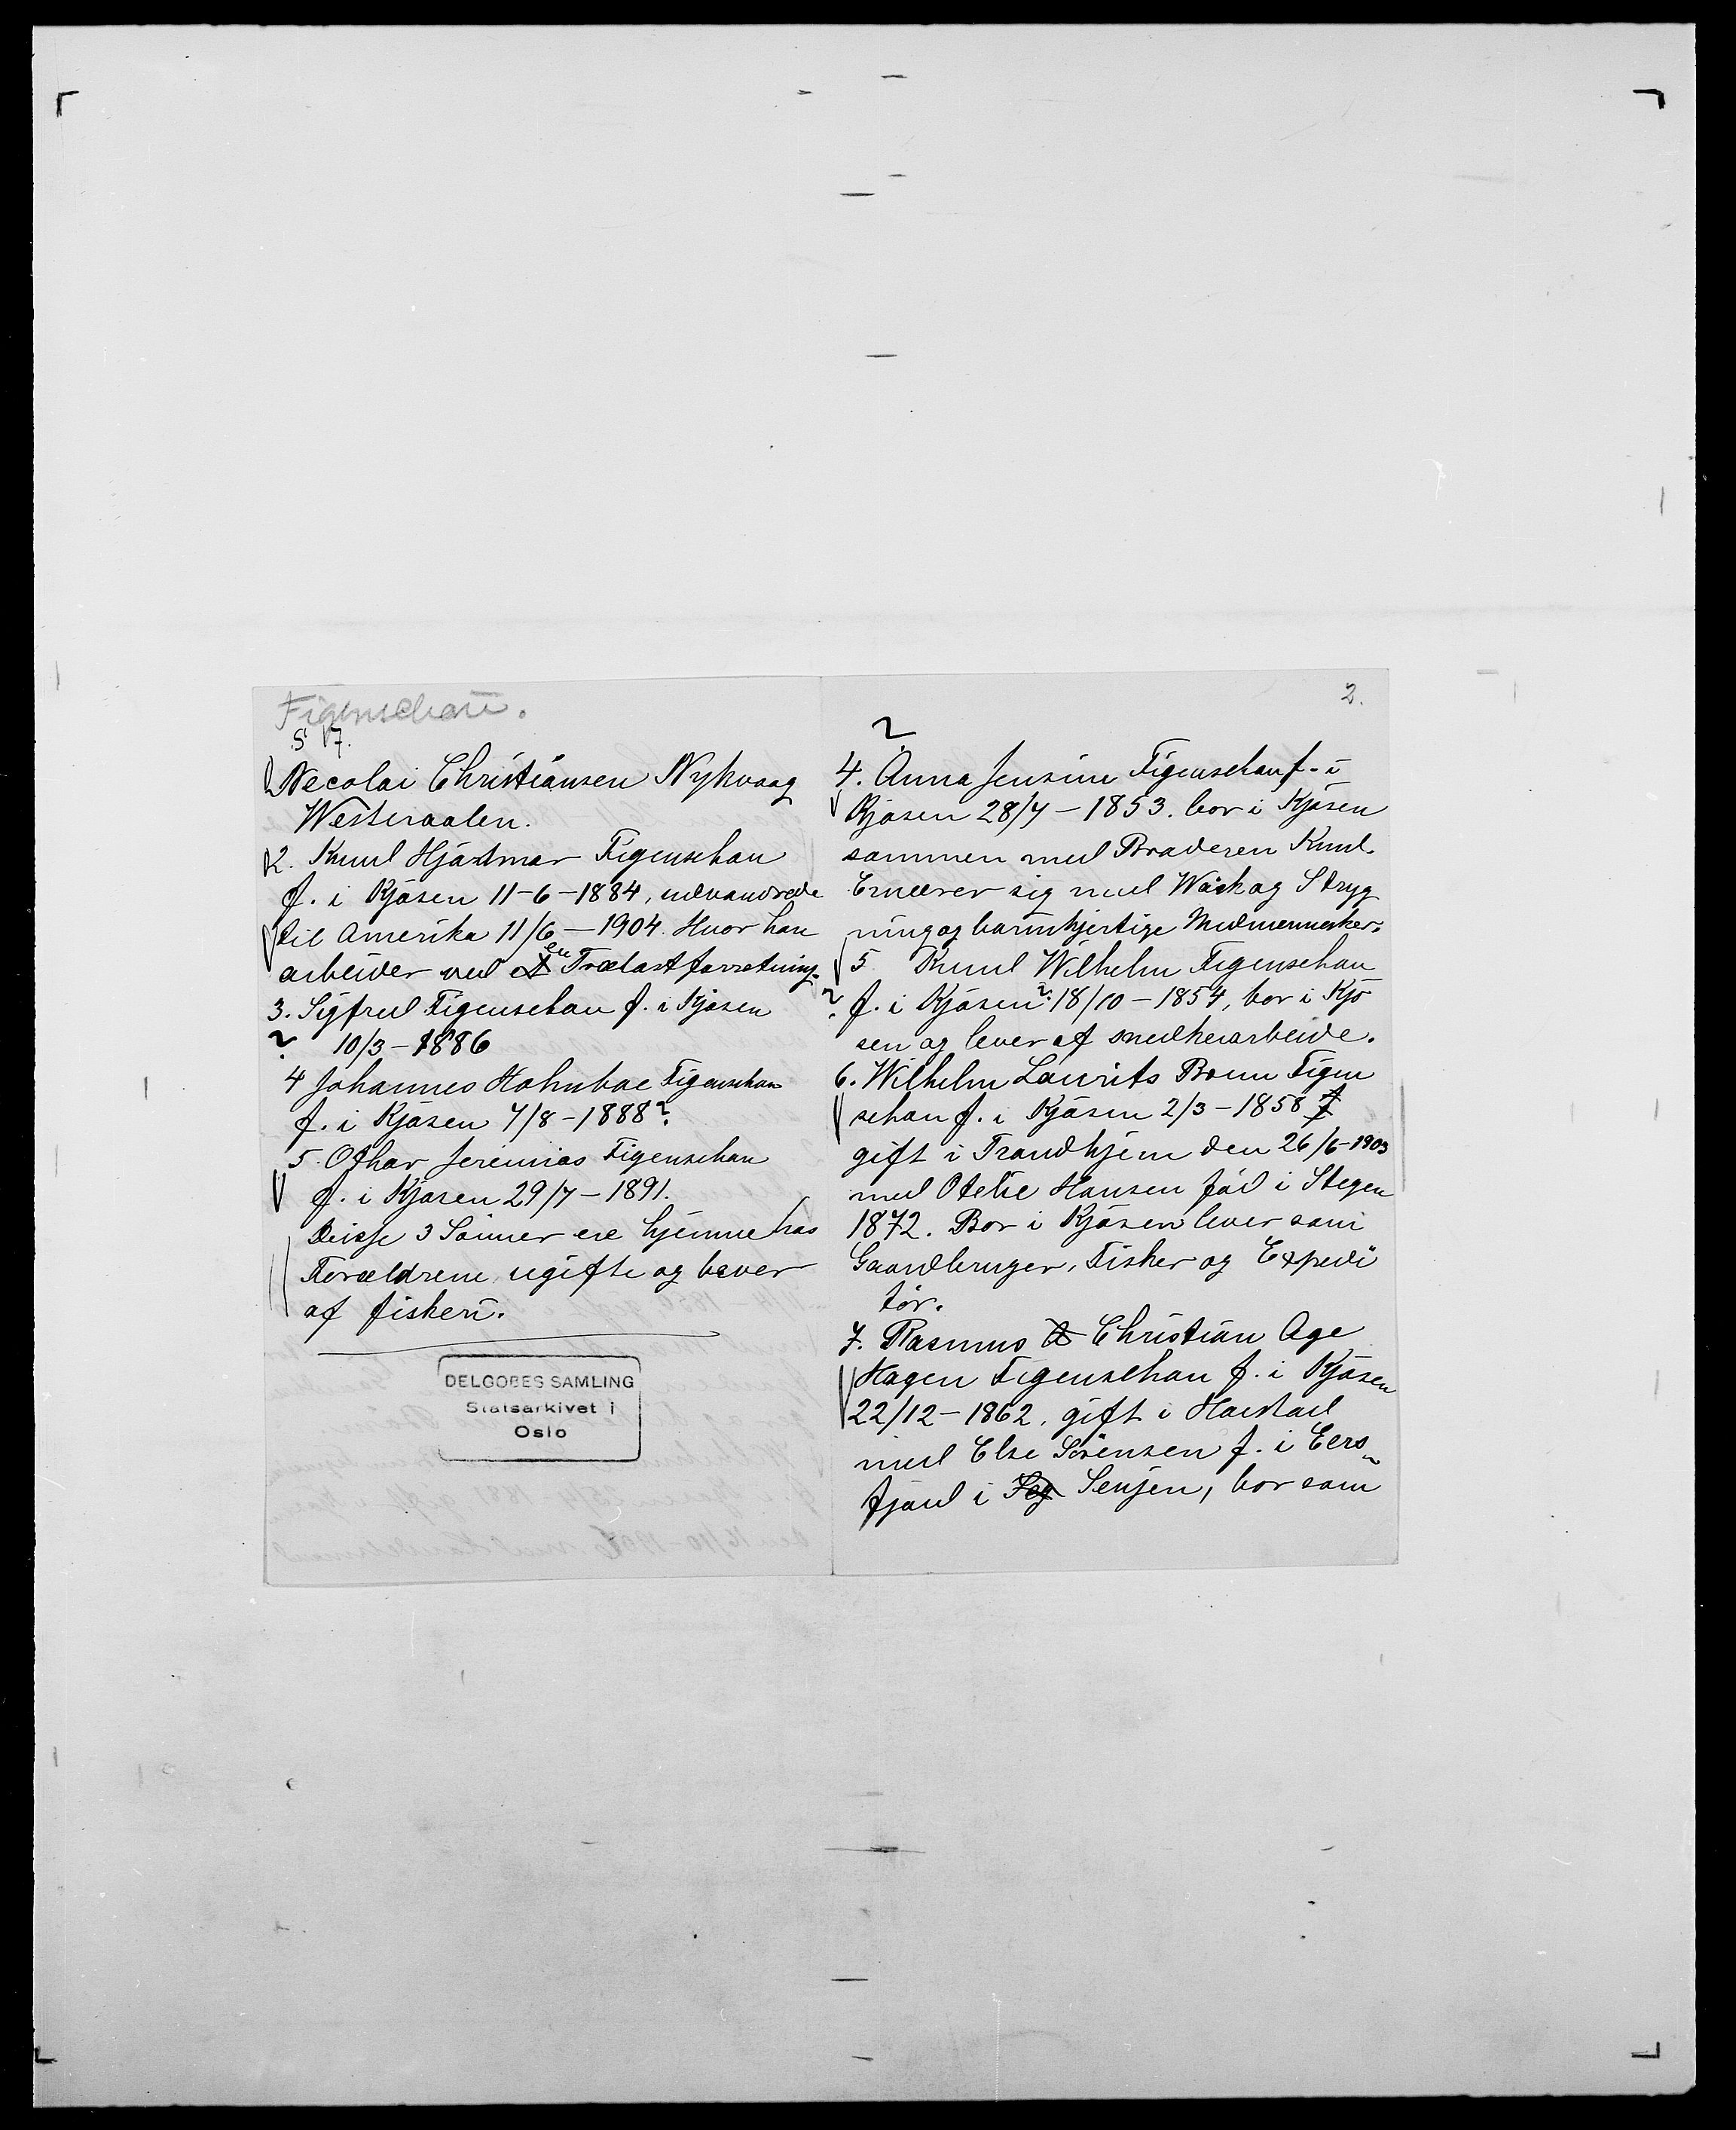 Figenschou.
S 17.
Necolai Christiansen Nykvaag
Westeraalen.
2. Knud Hjadmar Figenschau
f. i Kjøsen 11-6-1884, udvandrede
til Amerika 11/6-1904. Hvor han
arbeider ved en Trælastforretning.
3. Sigfred Figenschau f. i Kjøsen
? 10/3-1886
4 Johannes Holmboe Figenschau
f. i Kjøsen 7/8-1888?
5. Othar Jeremias Figenschau
f. i Kjøsen 29/7-1891.
Disse 3 Sønner ere hjemme hos
Forældrene ugifte og lever
af fiskeri.
DELGOBES SAMLING
Statsarkivet i
Oslo
2.
?
4. Anna Jensine Figenschau f. i
Kjøsen 28/7-1853. bor i Kjøsen
sammen med Broderen Knud.
Ernærer sig med Wask og Stryg
ning og barmhjertige Medmennesker.
5 Knud Wilhelm Figenschau
? f. i Kjøsen ? 18/10-1854, bor i Kjø
sen og lever af snedkerarbeide.
6. Wilhelm Laurits Bonn Figen
schau f. i Kjøsen 2/3-1858
gift i Trondhjem den 26/6-1903
med Otelie Hansen fød i Stegen
1872. Bor i Kjøsen lever som
Gaardbruger, Fisker og Expedi
tør.
7. Rasmus Christian Age
Hagen Figenschau f. i Kjøsen
22/12-1862. gift i Harstad
med Else Sörensen f. i Eers
fjord i Senjen, bor som